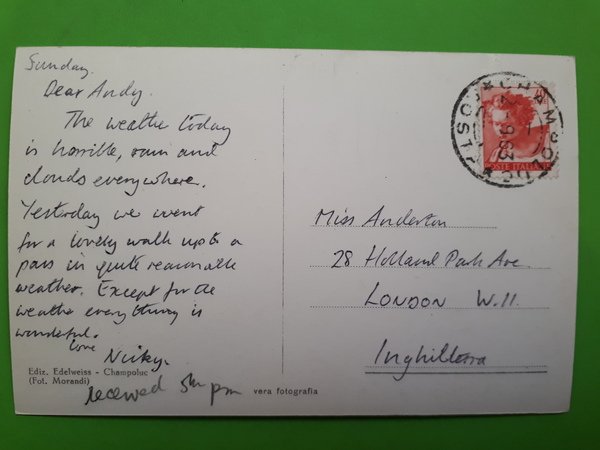 Sunday.
Dear Andy.
The weathe today
is horrible, rain and
clouds everywhere.
Yesterday we went
for a lovely walk up to a
pass in quite reasonable
weather. Except for the
weathe everything is
wonderful.
love
Nicky.
Ediz. Edelweiss - Champoluc
(Fot. Morandi)
received 5th pm
vera fotografia
CHAMPOLUC
POSTE ITALIANE
Miss Anderton
28 Holland Park Ave
LONDON W.11.
Inghilterra